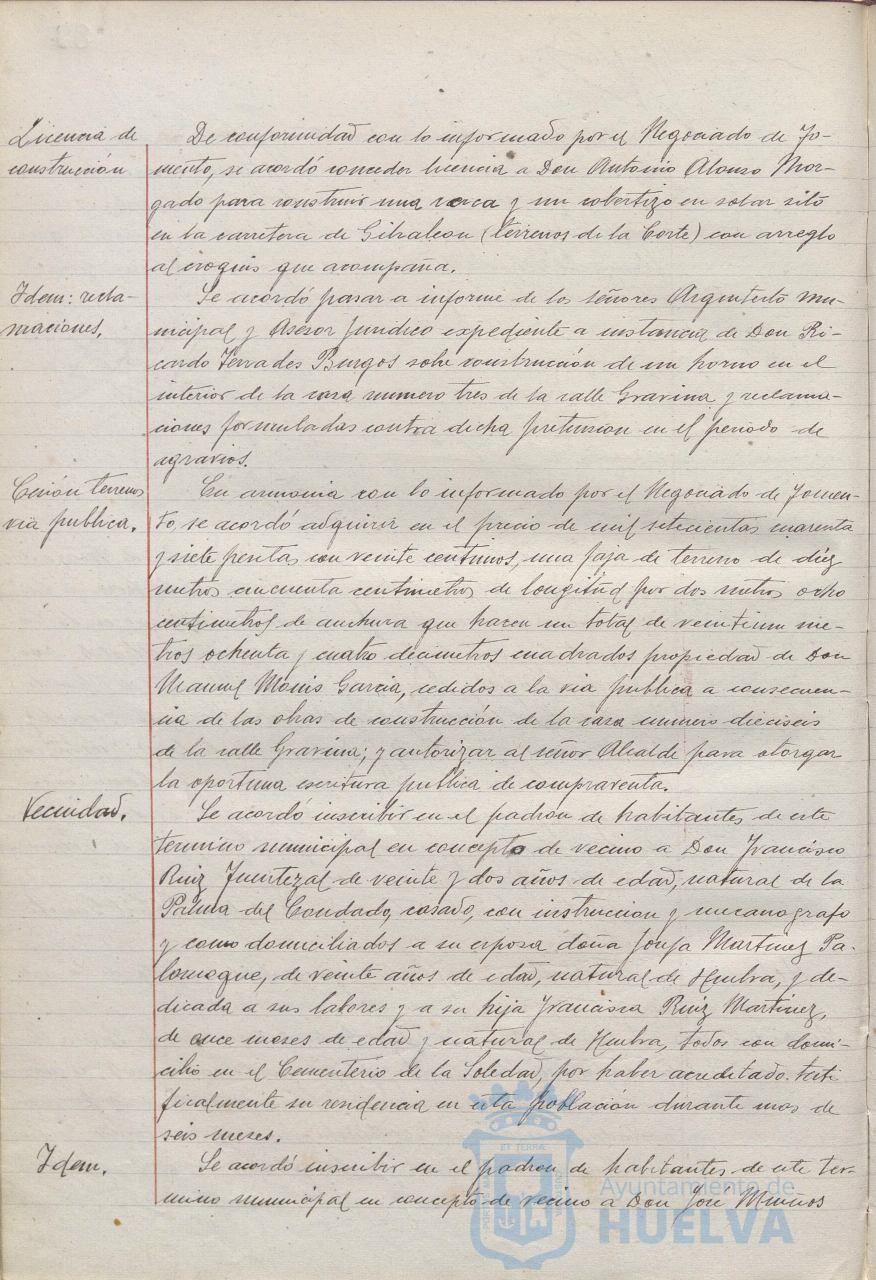 Licencia de
construcción
De conformidad con lo informado por el Negociado de Fo-
mento, se acordó conceder licencia a Don Antonio Alonso Mor-
gado para construir una cerca y un cobertizo en solar sito
en la carretera de Gibraleon (terrenos de la Corte) con arreglo
al croquis que acompaña.
Idem: recla-
maciones.
Se acordó pasar a informe de los señores Arquitecto mu-
nicipal y Asesor Juridico expediente a instancia de Don Ri-
cardo Terrades Burgos sobre construcción de un horno en el
interior de la casa numero tres de la calle Gravina y reclama-
ciones formuladas contra dicha pretension en el periodo de
agravios.
Cesión terrenos
via publica.
En armonia con lo informado por el Negociado de Fomen-
to, se acordó adquirir en el precio de mil setecientas cuarenta
y siete pesetas con veinte centimos, una faja de terreno de diez
metros cincuenta centimetros de longitud por dos metros ocho
centimetros de anchura que hacen un total de veintiun me-
tros ochenta y cuatro decimetros cuadrados propiedad de Don
Manuel Monis Garcia, cedidos a la via publica a consecuen-
cia de las obras de construcción de la casa numero dieciseis
de la calle Gravina; y autorizar al señor Alcalde para otorgar
la oportuna escritura publica de compraventa.
Vecindad.
Se acordó inscribir en el padron de habitantes de este
termino municipal en concepto de vecino a Don Francisco
Ruiz Fuentezal de veinte y dos años de edad, natural de la
Palma del Condado, casado, con instruccion y mecanografo
y como domiciliados a su esposa doña Josefa Martinez Pa-
lomeque, de veinte años de edad, natural de Huelva, y de-
dicada a sus labores y a su hija Francisca Ruiz Martinez,
de once meses de edad y natural de Huelva, todos con domi-
cilio en el Cementerio de la Soledad, por haber acreditado testi
ficalmente su residencia en esta población durante mas de
seis meses.
Idem.
Se acordó inscribir en el padron de habitantes de este ter-
mino municipal en concepto de vecino a Don José Muños
ET TERRAE
Ayuntamiento de
HUELVA